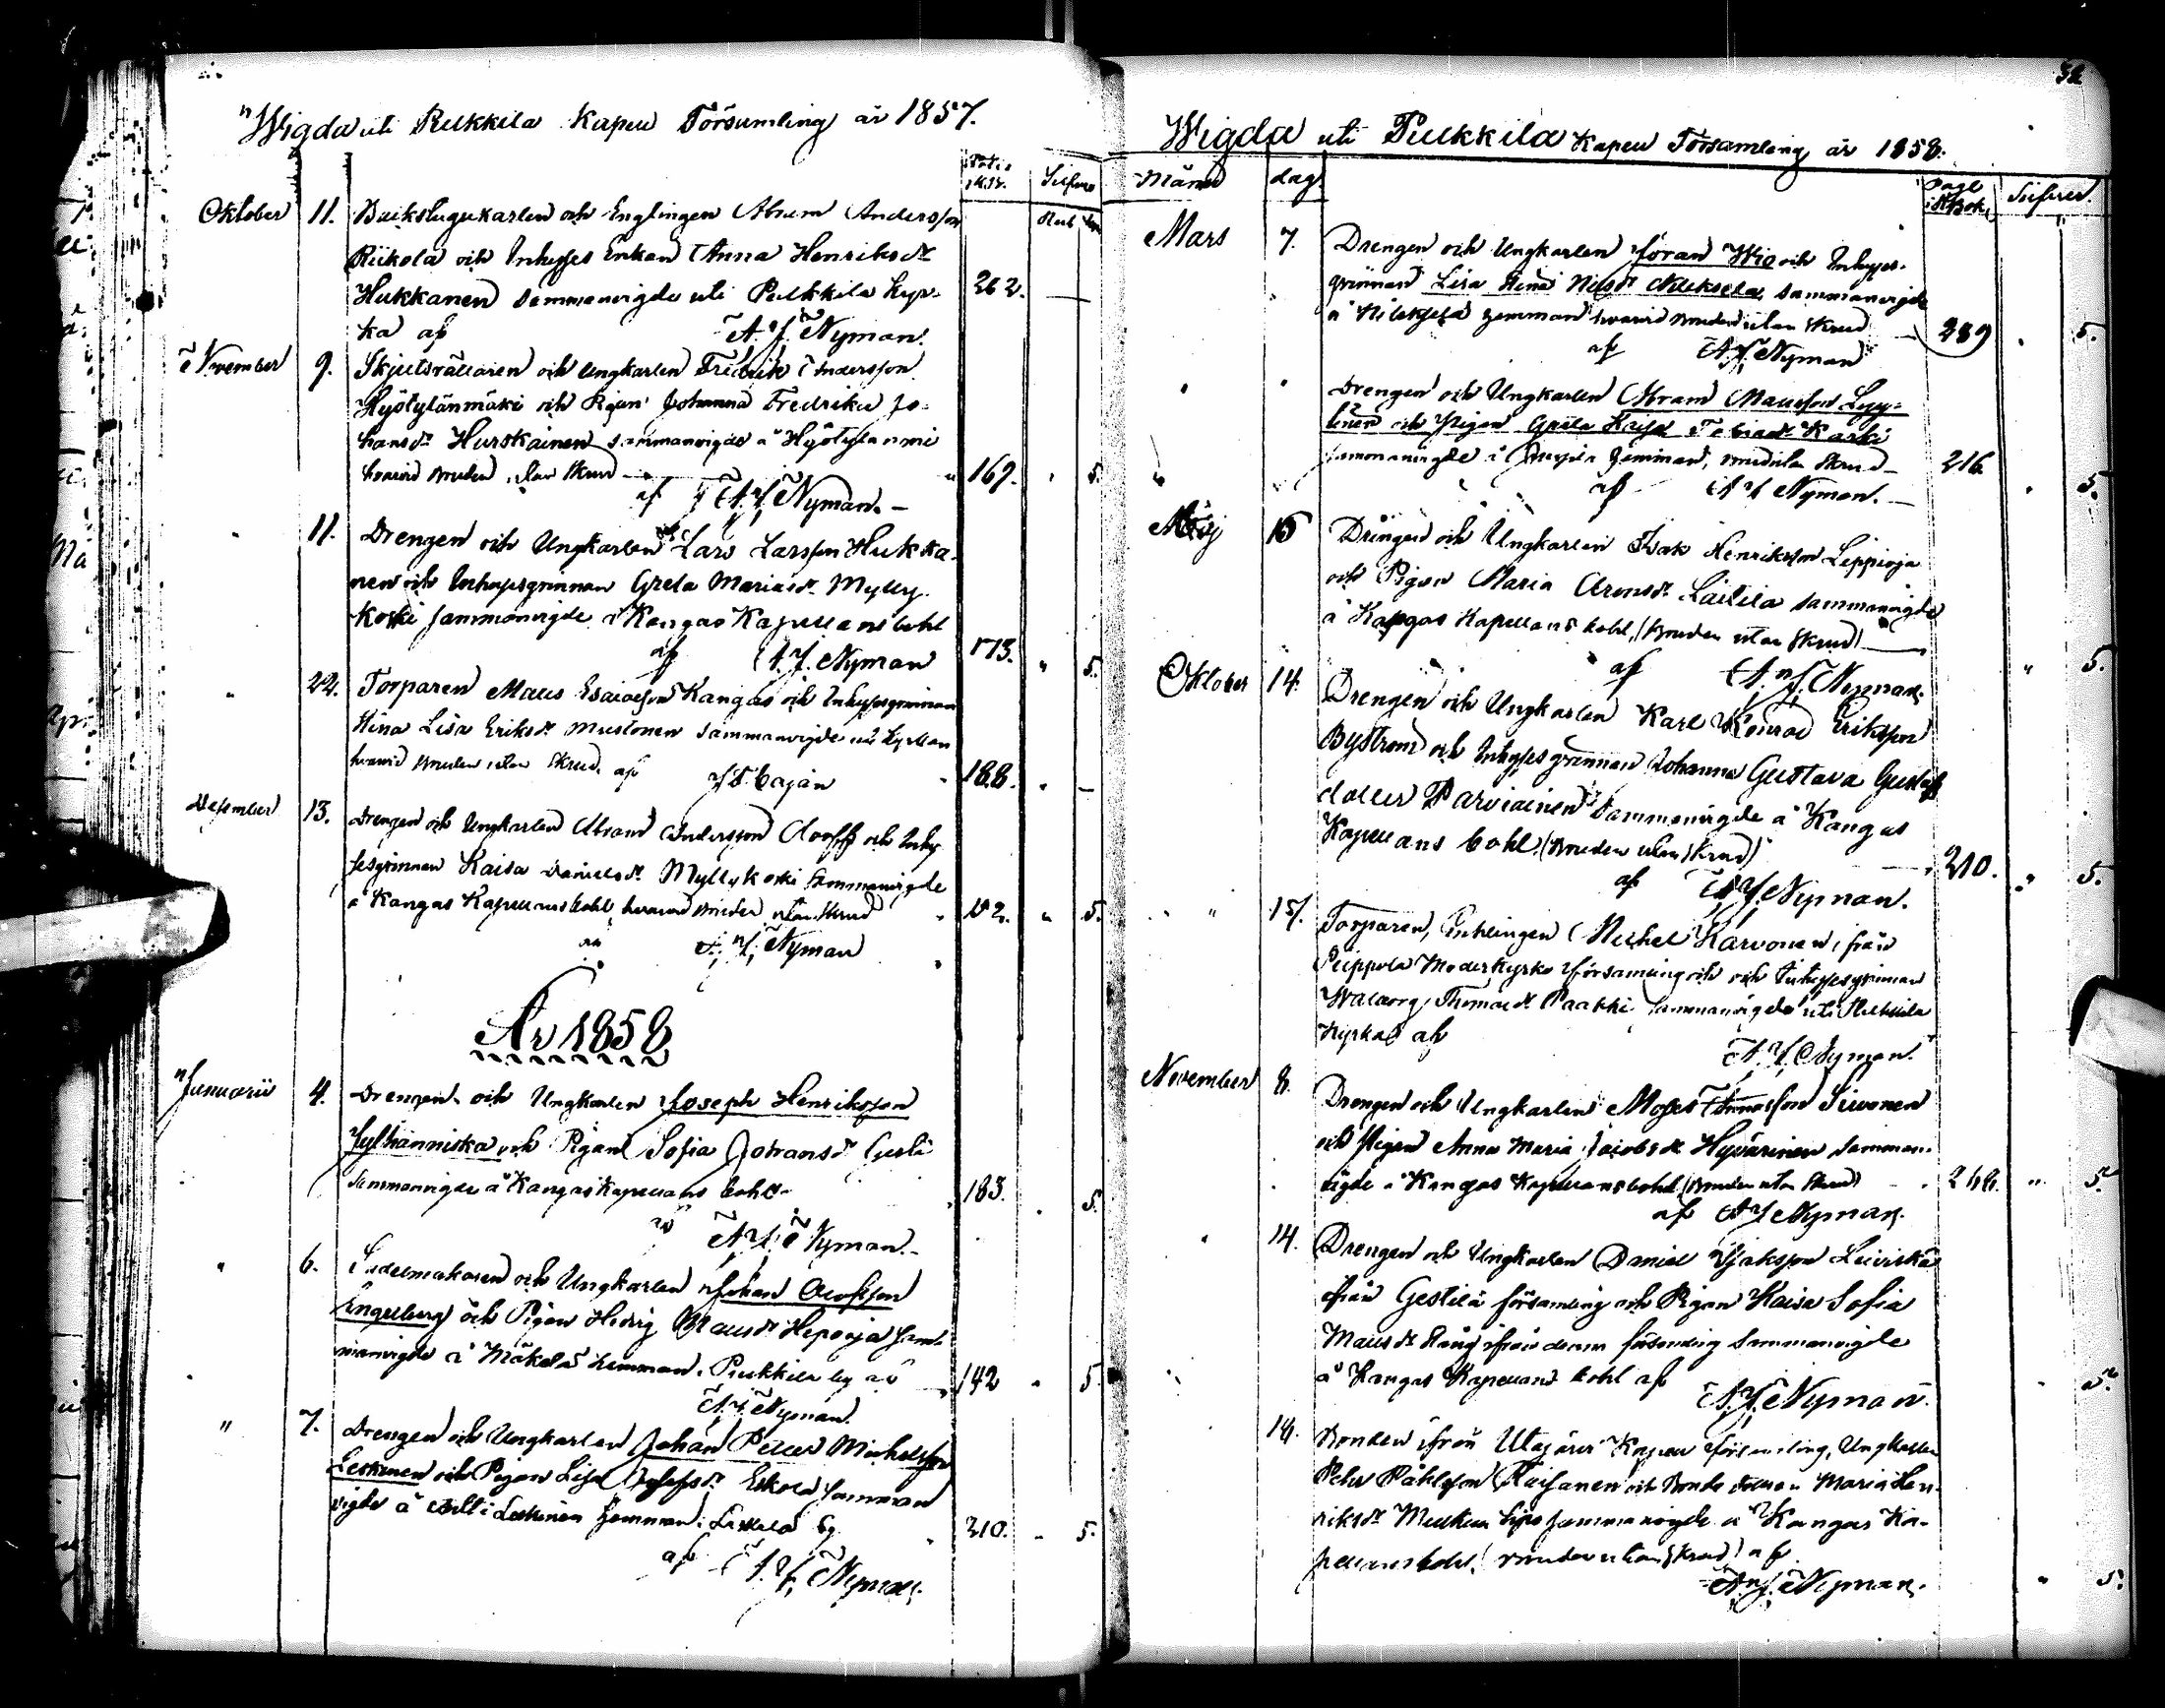 Wigda uti Pulkkila Kapell Församling år 1857.
Silfver
Rub
Oktober 11. och Englingen Abram Andersson
Riikola och Inhyses Enkan Anna Henriksdr
Hukkanen sammanvigde uti Pulkkila Kyr-
ka af A. J. Nyman. 262. —
November 9. Skjutsrättaren och Ungkarlen Fredrik Andersson
Hyötylänmäki och Pigan Johanna Fredrika Jo-
hansdr Hurskainen sammanvigde å
hvarvid Bruden utan Skrud 169. " 5.
af A. J. Nyman. —
" 11. Drengen och Ungkarlen Lars Larsson Hukka-
nen och Inhysesqvinnan Greta Mariasdr Mylly-
koski sammanvigde å Kangas Kapellans bohl
af A. J. Nyman 173. " 5.
" 22. Torparen Maus Esaiasson Kangas och Inhysesqvinnan
Stina Lisa Eriksdr Mustonen sammanvigde uti Kyrkan
hvarvid Bruden utan Skrud. af Cajan 188. " —
December 13. Drengen och Ungkarlen Abram Andersson och Inhy-
sesqvinnan Kaisa Danielsdr Myllykoski sammanvigde
å Kangas Kapellans bohl hvarvid Bruden utan Skrud " 5.
A. J. Nyman
År 1858
Januarii 4. Drengen och Ungkarlen Joseph Henriksson
Jylhänniska och Pigan Sofia Johansdr
sammanvigde å Kangas Kapellans bohl 183. " 5.
A. J. Nyman. —
" 6. Sadelmakaren och Ungkarlen Johan Olofsson
Engelberg och Pigan Hedvig Mausdr Hepooja sam-
manvigde å Mäkelä hemman i Pulkkila by af 142 " 5.
A. J. Nyman.
" 7. Drengen och Ungkarlen Johan Petter Michelsson
Leskinen och Pigan Lisa Josefsdr Eskola samman-
vigde å Leskinen hemman i by 210. " 5.
af A. J. Nyman.
Wigda uti Pulkkila Kapell Församling år 1858.
Månad dag. Pagl i KBok. Silfver.
Mars 7. Drengen och Ungkarlen Jöran Wio och Inhyses-
qvinnan Lisa Stina Nilsdr sammanvigde
å hemman hvarvid Bruden utan Skrud 289 " 5.
af A. J. Nyman
" " Drengen och Ungkarlen Abram Mausson Lyy-
tinen och Pigan Greta Kajsa Tobiasdr Karki
sammanvigde å hemman, Bruden utan Skrud 216 " 5.
af A. J. Nyman. —
Maj 16 Drängen och Ungkarlen Isak Henriksson Leppioja
och Pigan Maria Aronsdr Laitila sammanvigde
å Kangas Kapellans bohl, (Bruden utan Skrud) —
af A. J. Nyman. " 5.
Oktober 14. Drengen och Ungkarlen Karl Konrad Eriksson
Byström och Inhysesqvinnan Johanna Gustava Gustafs
dotter Parviainen sammanvigde å Kangas
Kapellans bohl. (Bruden utan Skrud) 210. " 5.
af A. J. Nyman.
" 17. Torparen, Enklingen Michel Karvonen, från
Piippola Moderkyrko församling och Inhysesqvinnan
Walborg Thomasdr Paakki sammanvigde uti Pulkkila
Kyrka af
A. J. Nyman.
November 8. Drengen och Ungkarlen Moses Thomasson Sirvonen
och Pigan Anna Maria Jacobsdr Hyvärinen samman-
vigde å Kangas Kapellans bohl (Bruden utan Skrud) " 5.
af A. J. Nyman.
" 14. Drengen och Ungkarlen Daniel Isaksson Leiviskä
från Gestilä församling och Pigan Kaisa Sofia
Mausdr ifrån denna församling sammanvigde
å Kangas Kapellans bohl af
A. J. Nyman.
14. Bonden ifrån Utajärvi Kapell församling, Ungkarlen
Pehr Påhlsson och Bonde Maria Hen-
riksdr sammanvigde å Kangas Ka-
pellans bohl. (Bruden utan Skrud) af
A. J. Nyman. " 5.